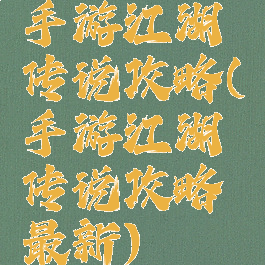 手游江湖
传说攻略(
手游江湖
传说攻略
最新)